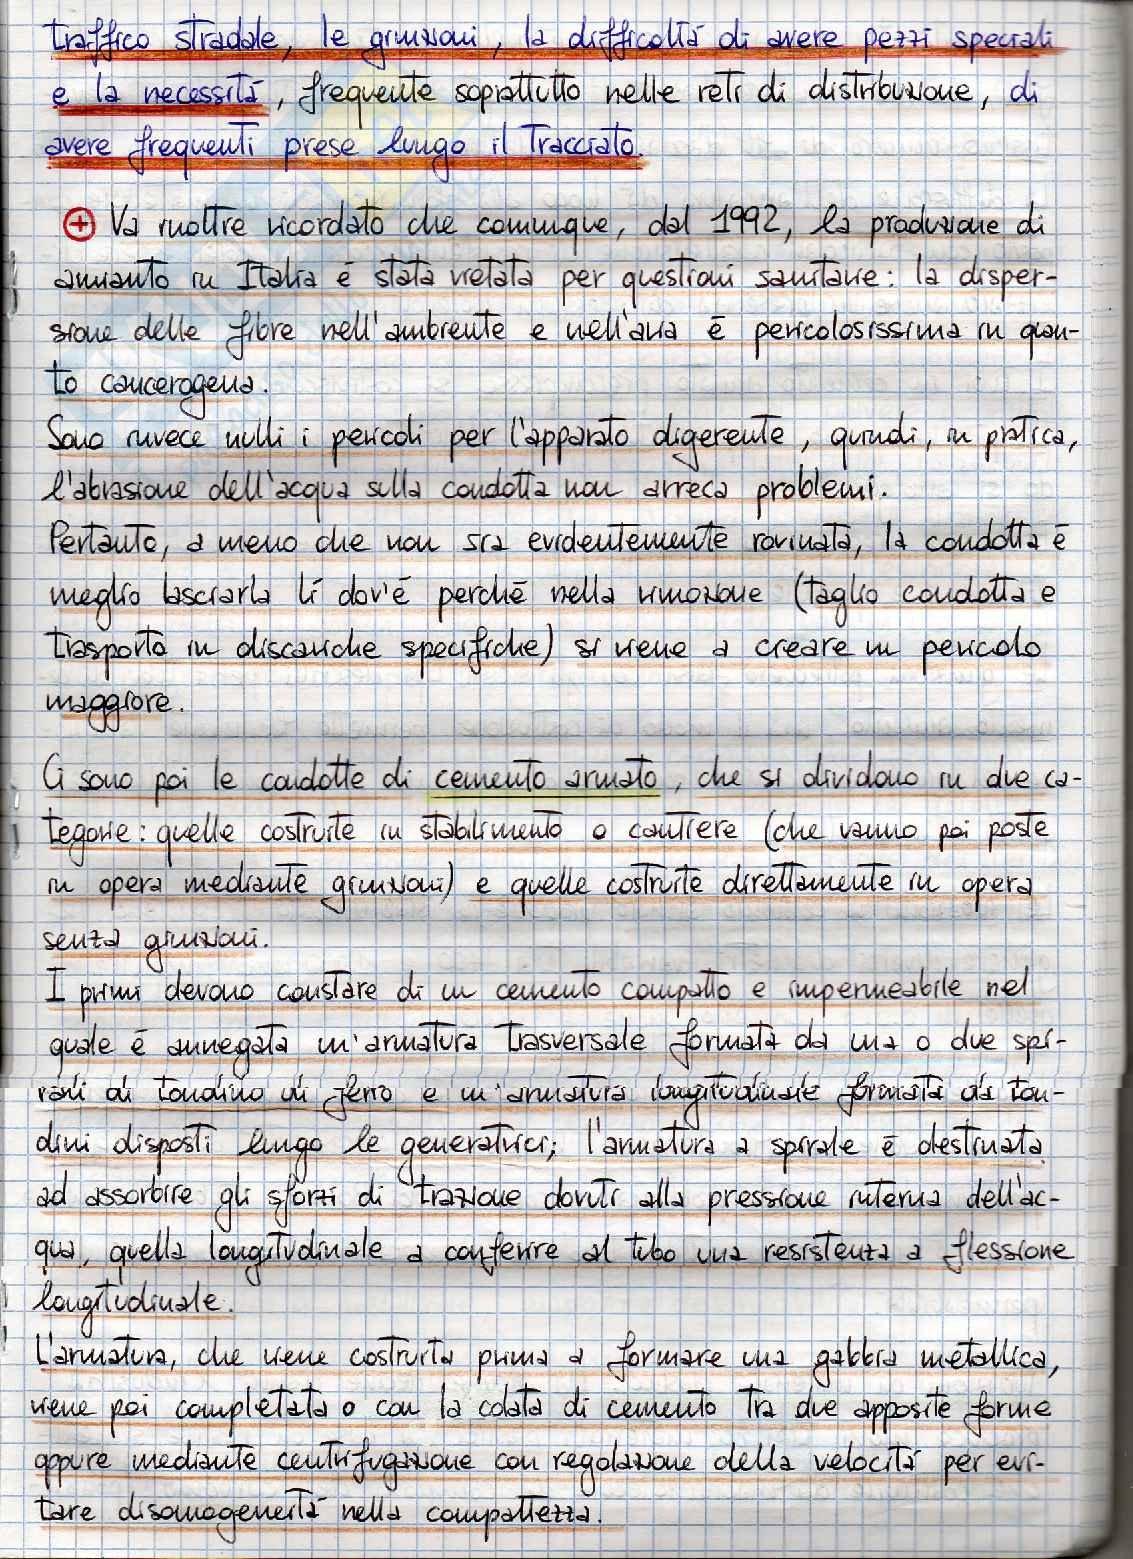 traffico stradale, le giunzioni, la difficoltà di avere pezzi speciali
e la necessità, frequente soprattutto nelle reti di distribuzione, di
avere frequenti prese lungo il tracciato.
⊕ Va inoltre ricordato che comunque, dal 1992, la produzione di
amianto in Italia è stata vietata per questioni sanitarie: la disper-
sione delle fibre nell'ambiente e nell'aria è pericolosissima in quan-
to cancerogena.
Sono invece nulli i pericoli per l'apparato digerente, quindi, in pratica,
l'abrasione dell'acqua sulla condotta non arreca problemi.
Pertanto, a meno che non sia evidentemente rovinata, la condotta è
meglio lasciarla lí dov'è perchè nella rimozione (taglio condotta e
trasporto in discariche specifiche) si viene a creare un pericolo
maggiore.
Ci sono poi le condotte di cemento armato, che si dividono in due ca-
tegorie: quelle costruite in stabilimento o cantiere (che vanno poi poste
in opera mediante giunzioni) e quelle costruite direttamente in opera
senza giunzioni.
I primi devono constare di un cemento compatto e impermeabile nel
quale è annegata un'armatura trasversale formata da una o due spi-
rali di tondino di ferro e un'armatura longitudinale formata da ton-
dini disposti lungo le generatrici; l'armatura a spirale è destinata
ad assorbire gli sforzi di trazione dovuti alla pressione interna dell'ac-
qua, quella longitudinale a conferire al tubo una resistenza a flessione
longitudinale.
L'armatura, che viene costruita prima a formare una gabbia metallica,
viene poi completata o con la colata di cemento tra due apposite forme
oppure mediante centrifugazione con regolazione della velocità per evi-
tare disomogeneità nella compattezza.